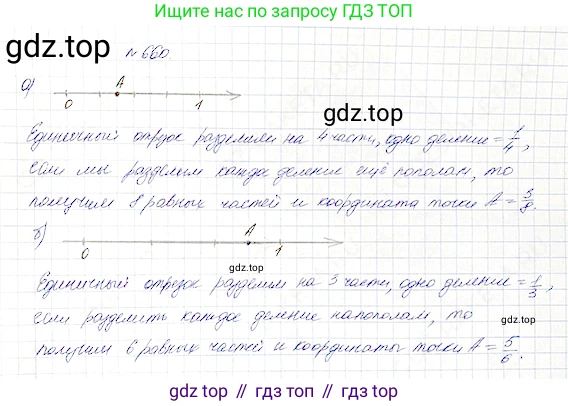 Ищите нас по запросу ГДЗ ТОП
gdz.top
№ 660.
а)
A
0 1
gdz.top
Единичный отрезок разделили на 4 части, одно деление = 1/4,
если мы разделим каждое деление ещё пополам, то
получим 8 равных частей и координата точки A = 3/8.
б)
A
0 1
gdz.top
Единичный отрезок разделили на 3 части, одно деление = 1/3,
если разделить каждое деление напополам, то
получим 6 равных частей и координаты точки A = 5/6.
gdz.top // гдз топ // гдз.топ